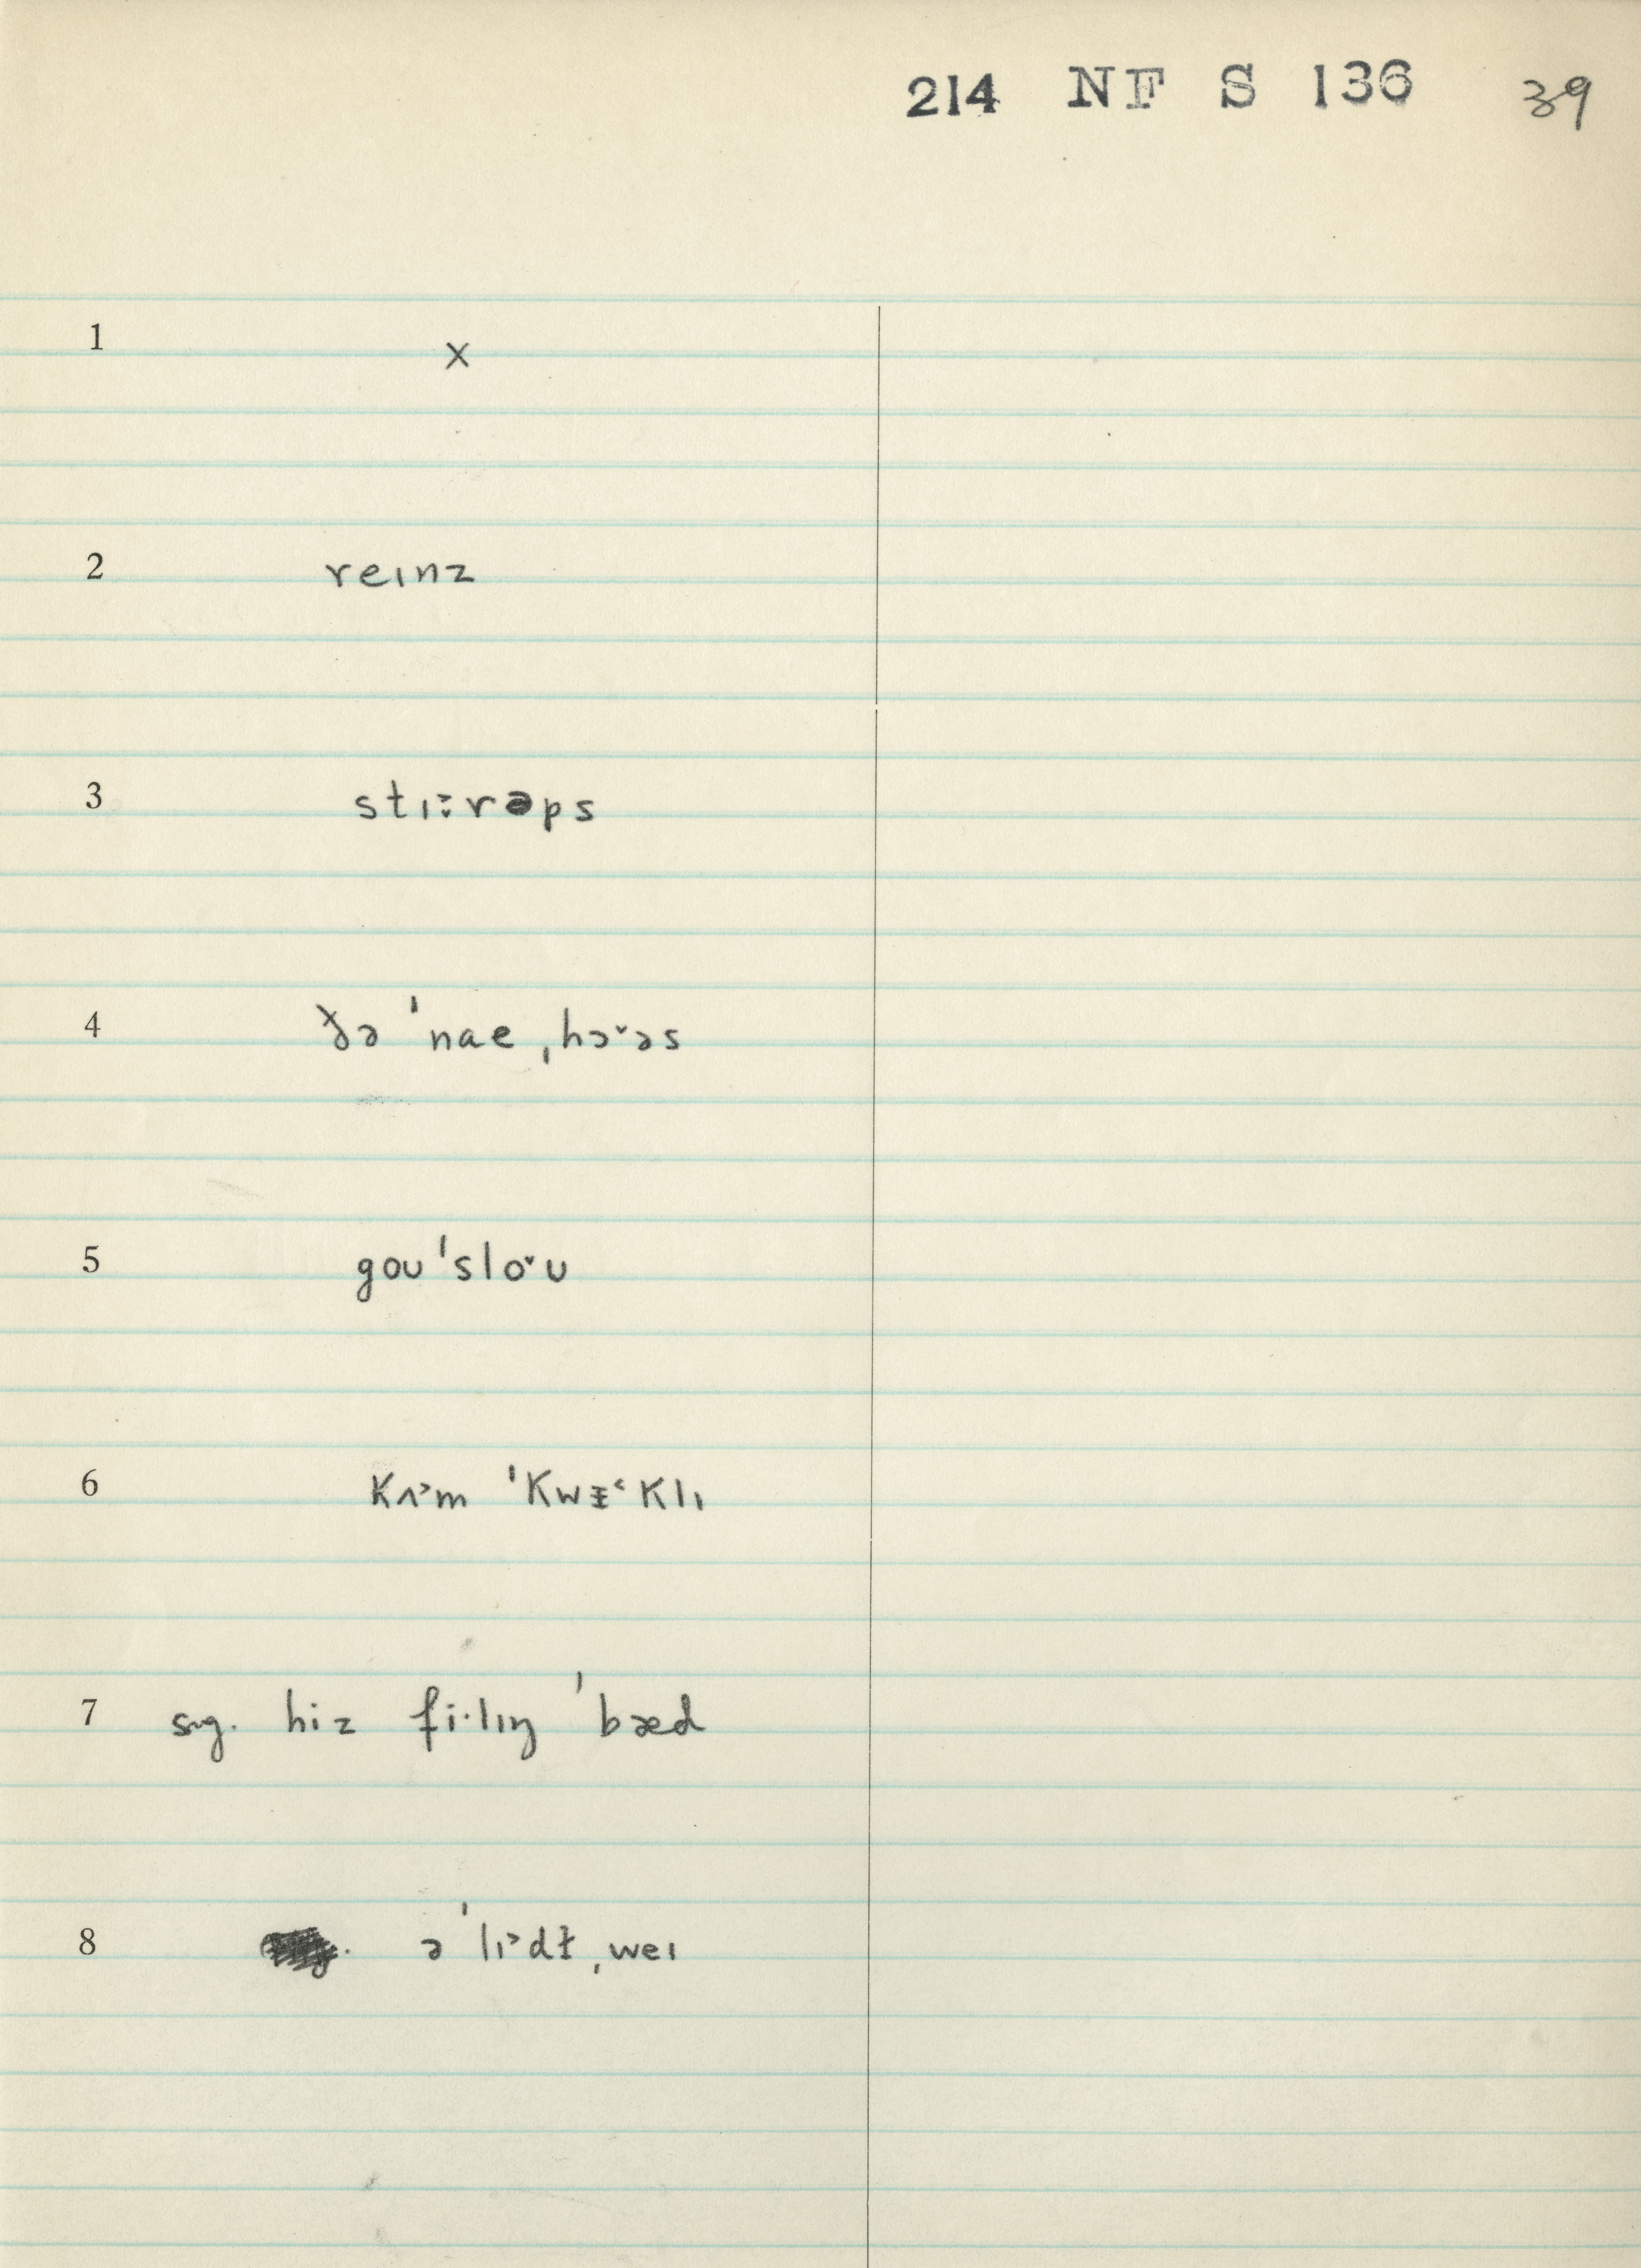 214 NF S 136 39
1 x
2 reɪnz
3 stɪ:rəps
4 ðə ˈnae ˌhɔ˅əs
5 goʊ ˈslo˅ʊ
6 kʌ˃m ˈkwɪ˂klɪ
7 sug. hiz fi·lɪŋ ˈbæd
8 ə ˈlɪ˃dɫ ˌweɪ